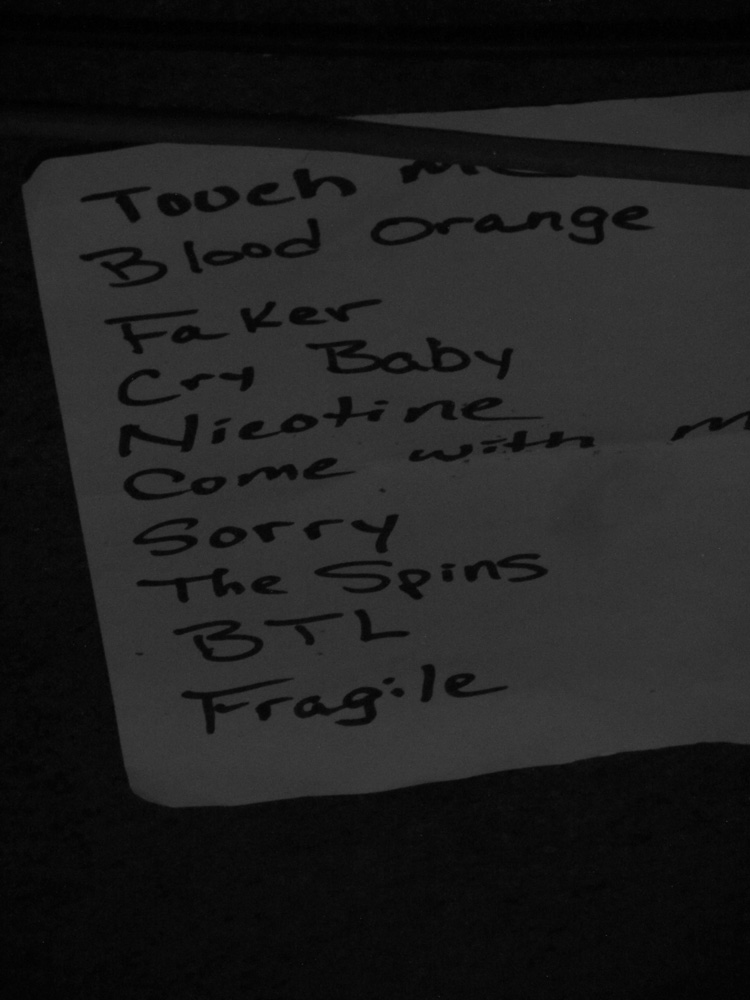 Touch me
Blood Orange
Faker
Cry Baby
Nicotine
Come with
Sorry
The Spins
BTL
Fragile